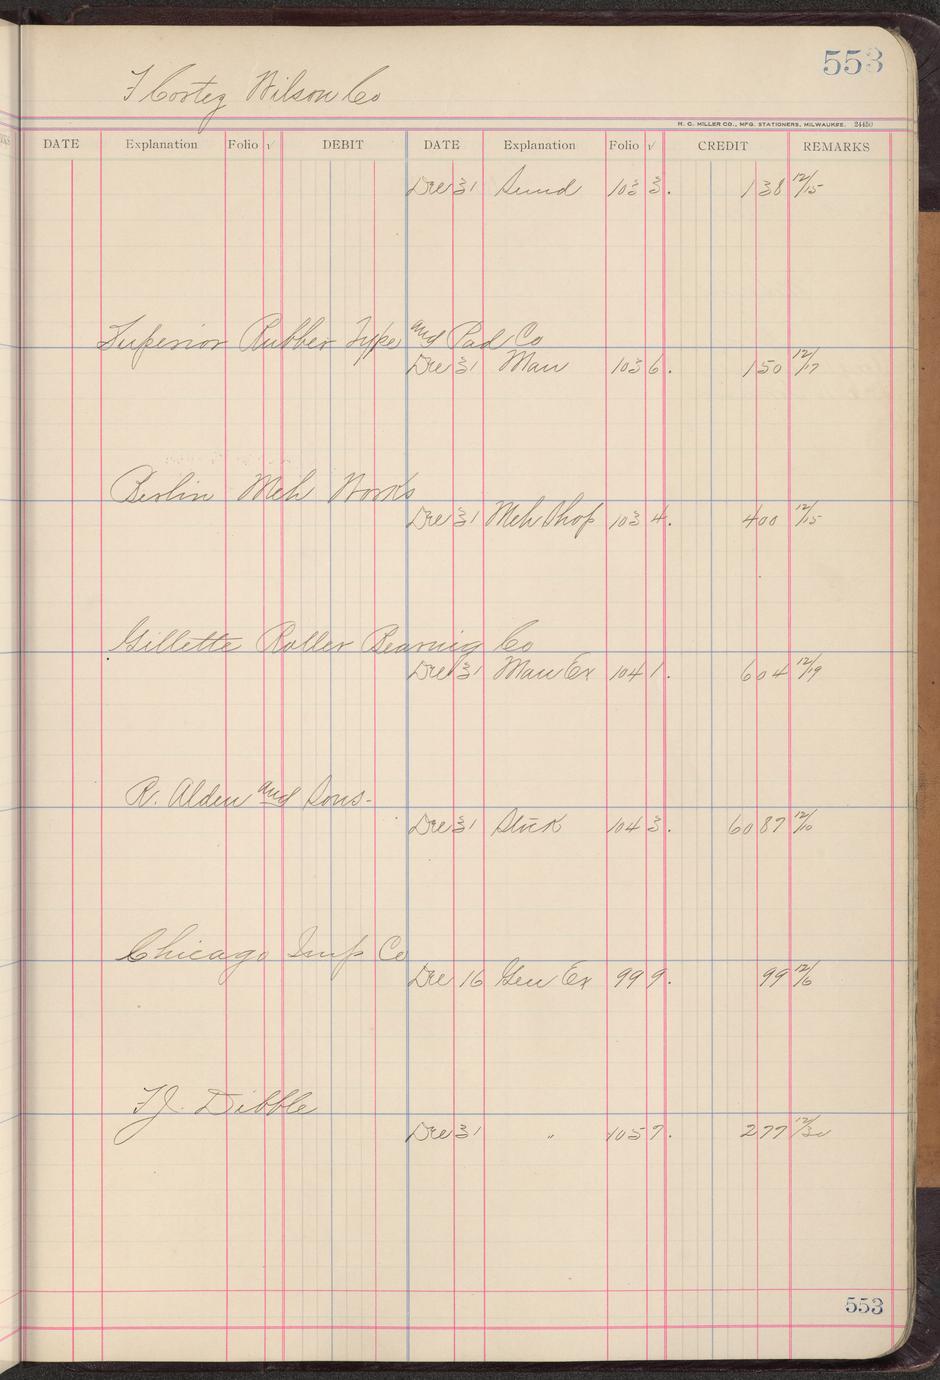 553
F Cortez Wilson Co
H. C. MILLER CO., MFG. STATIONERS, MILWAUKEE. 24450
DATE Explanation Folio √ DEBIT DATE Explanation Folio √ CREDIT REMARKS
Dec 31 Sund 1033. 138 12/15
Superior Rubber Type and Pad Co
Dec 31 Man 1036. 150 12/17
Berlin Mch Works
Dec 31 Mch Shop 1034. 400 12/15
Gillette Roller Bearing Co
Dec 31 Man Ex 1041. 604 12/19
R. Alden and Sons.
Dec 31 Stick 1043. 6087 12/10
Chicago Imp Co
Dec 16 Gen Ex 999. 99 12/6
F J. Dibble
Dec 31 " 1057. 277 12/30
553